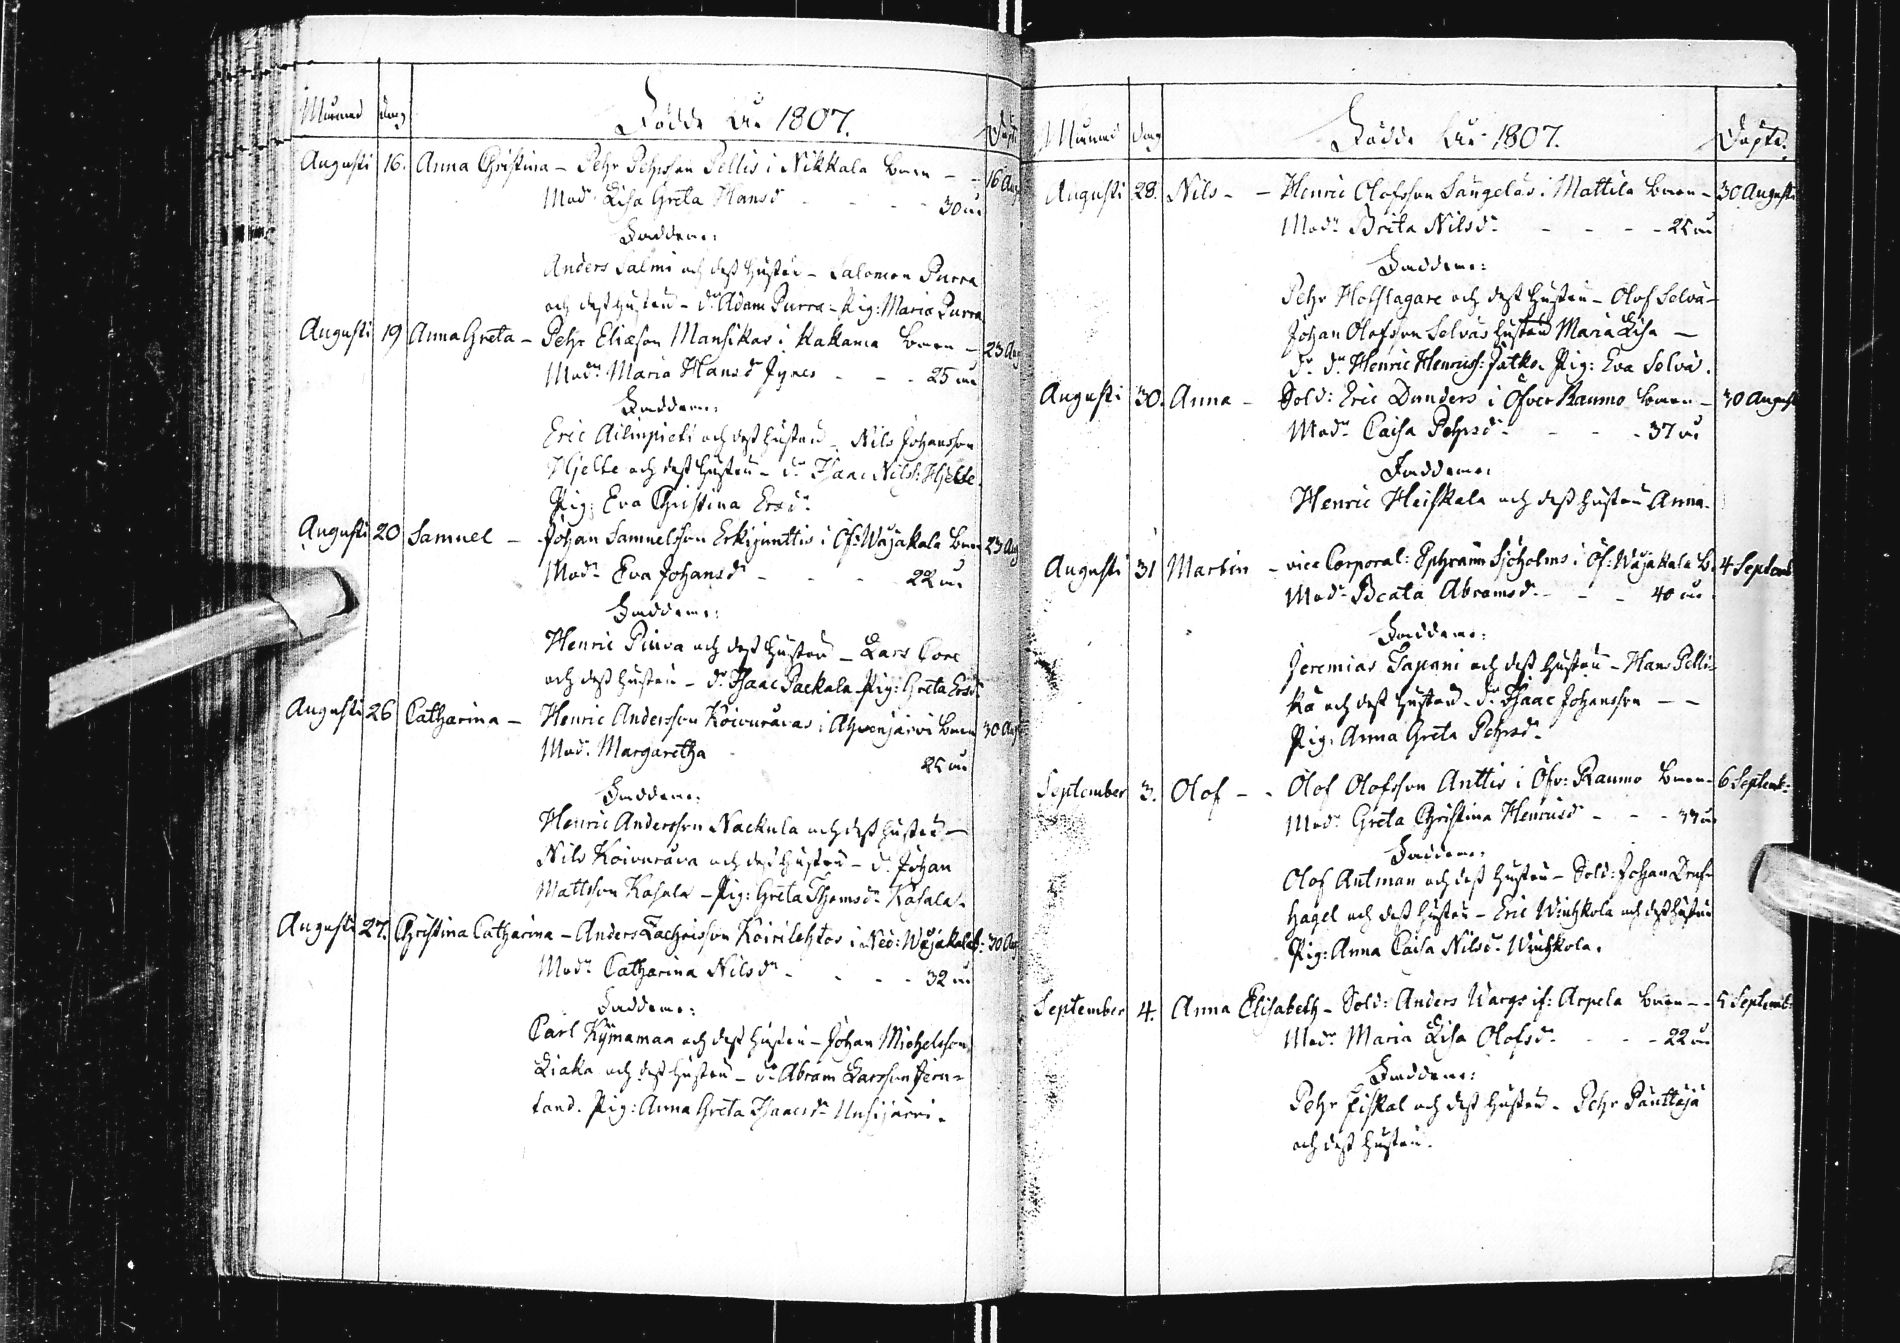 Månad dag Födde År 1807. Döpt.
Augusti 16. Anna Christina – Pehr Pehrsson Pellis i Nikkala barn – – 16 Aug
Mod: Lisa Greta Hansd:r – – – 30 år
Faddrar:
Anders Salmi och dess hustru – Salomon Purra
och dess hustru – d:r Adam Purra – Pig: Maria Purra
Augusti 19 Anna Greta – Pehr Eliæson Mansikas i Kakama barn – 23 Aug
Mod:r Maria Hansd:r – – – 25 år
Faddrar:
Eric Ailinpieti och dess hustru – Nils Johansson
Hjelte och dess hustru – d:r Isaac Nilss: Hjelte.
Pig: Eva Christina Ersd:r
Augusti 20 Samuel – Johan Samuelsson Erkijunttis i Öf: Wojakala barn 23 Aug
Mod:r Eva Johansd:r – – – 22 år
Faddrar:
Henric Piuva och dess hustru – Lars
och dess hustru – d:r Isaac Paekala Pig: Greta Ersd:r
Augusti 26 Catharina – Henric Andersson Koivuråvas i Ahvenjärvi barn 30 Aug
Mod:r Margaretha 25 år
Faddrar:
Henric Andersson Nackula och dess hustru –
Nils Koivuråva och dess hustru – d:r Johan
Mattsson Kasala – Pig: Greta Thomsd:r Kasala.
Augusti 27. Christina Catharina – Anders Zachrisson Koirilehtos i Ned: Wojakala b: 30 Aug
Mod:r Catharina Nilsd:r – – – 32 år
Faddrar:
Carl Kÿmaman och dess hustru – Johan Michelsson
Liaka och dess hustru – d:r Abram Larsson
Pig: Anna Greta Isaacsd:r Uusijärvi.
Månad dag Födde År 1807. Döpte.
Augusti 28. Nils – – Henric Olofsson i Mattila barn – 30 Augusti
Mod:r Brita Nilsd:r – – – – 25 år
Faddrar:
Pehr Hofslagare och dess hustru – Olof Selvä –
Johan Olofsson Selväs hustru Maria Lisa –
d:r Henric Henricss: Jatko. Pig: Eva Selvä.
Augusti 30. Anna – Sold: Eric Dunders i Öfver Raumo barn – 30 August
Mod:r Caisa Pehrsd:r – – – 37 år
Faddrar:
Henric Heiskala och dess hustru Anna.
Augusti 31 Martin – vice Corporal: Ephraim Sjöholms i Öf: Wojakala b: 4 Septemb
Mod:r Beata Abramsd:r – – – 40 år
Faddrar:
Jeremias Tapani och dess hustru – Hans Pelli-
kä och dess hustru – d:r Isaac Johansson – –
Pig: Anna Greta Pehrsd:r
September 3. Olof – – Olof Olofsson Anttis i Öfv: Raumo barn – 6 Septemb:
Mod:r Greta Christina Henricsd:r – – – 37 år
Faddrar:
Olof Antman och dess hustru – Sold: Johan
hagel och dess hustru – Eric Winhkola och dess hustru
Pig: Anna Caisa Nilsd:r Winhkola.
September 4. Anna Elisabeth – Sold: Anders Wargs if: Arpela barn – – 5 Septemb:
Mod:r Maria Lisa Olofsd:r – – – 22 år
Faddrar:
Pehr Fiskal och dess hustru – Pehr Panttaja
och dess hustru.